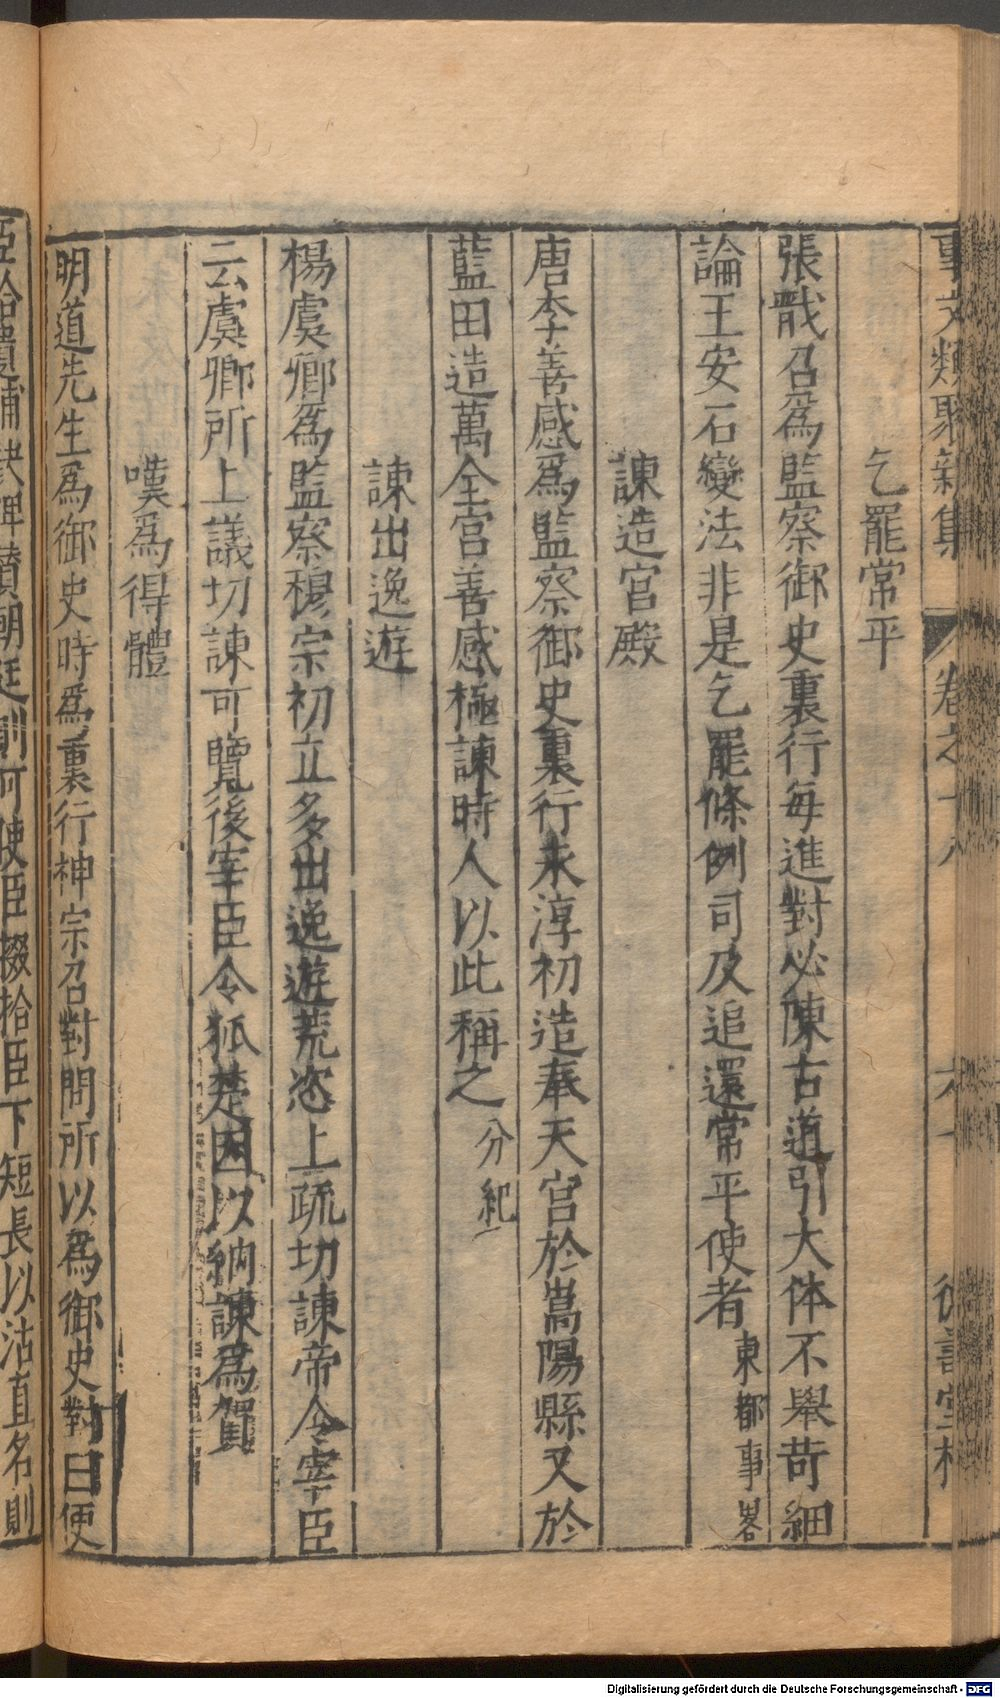 事文類聚新集 卷之十八 六十 德壽堂梓
乞罷常平
張戩召爲監察御史裏行每進對必陳古道引大体不舉苛細
論王安石變法非是乞罷條例司及追還常平使者東都事畧
諫造宮殿
唐李善感爲監察御史裏行永淳初造奉天宮於嵩陽縣又於
藍田造萬全宮善感極諫時人以此稱之分紀
諫出逸遊
楊虞卿爲監察穆宗初立多出逸遊荒恣上疏切諫帝令宰臣
云虞卿所上議切諫可覽後宰臣令狐楚因以納諫爲賀
嘆爲得體
明道先生爲御史時爲裏行神宗召對問所以爲御史對曰使
臣拾遺補缺裨贊朝廷則可使臣掇拾臣下短長以沽直名則
Digitalisierung gefördert durch die Deutsche Forschungsgemeinschaft - DFG